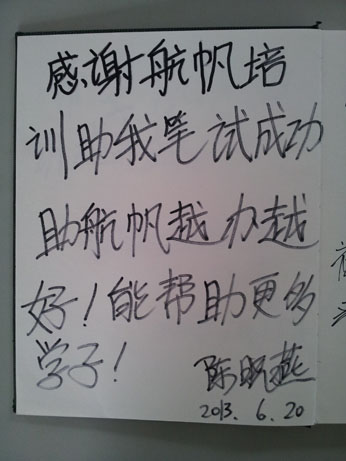 感谢航帆培
训助我笔试成功
助航帆越办越
好！能帮助更多
学子！
2013. 6. 20